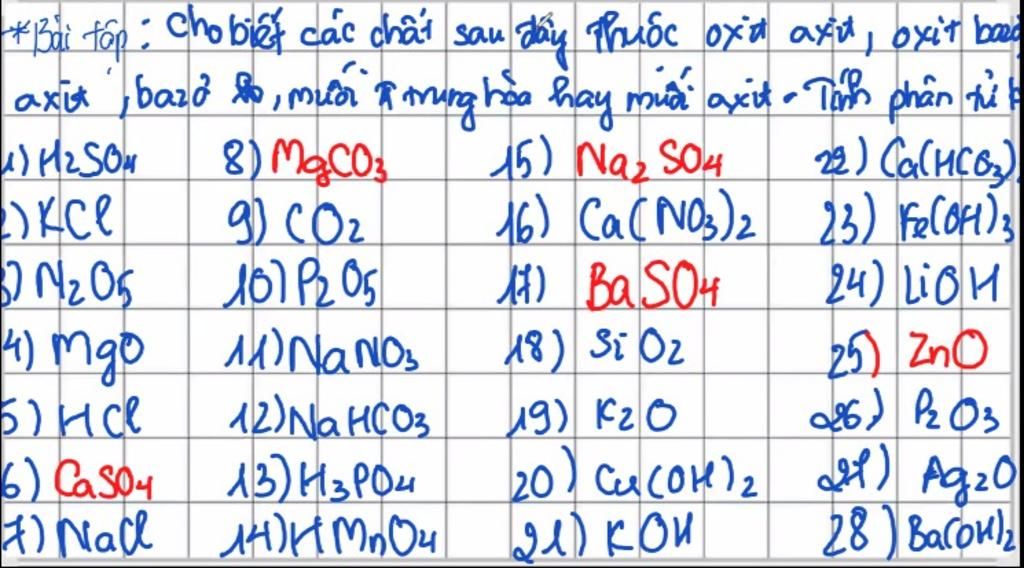 *Bài tập: Cho biết các chất sau đây thuộc oxit axit, oxit bazơ
axit, bazơ, muối trung hòa hay muối axit. Tính phân tử
1) H2SO4 8) MgCO3 15) Na2SO4 22) Ca(HCO3)
2) KCl 9) CO2 16) Ca(NO3)2 23) Fe(OH)3
3) N2O5 10) P2O5 17) BaSO4 24) LiOH
4) MgO 11) NaNO3 18) SiO2 25) ZnO
5) HCl 12) NaHCO3 19) K2O 26) P2O3
6) CaSO4 13) H3PO4 20) Cu(OH)2 27) Ag2O
7) NaCl 14) HMnO4 21) KOH 28) Ba(OH)2